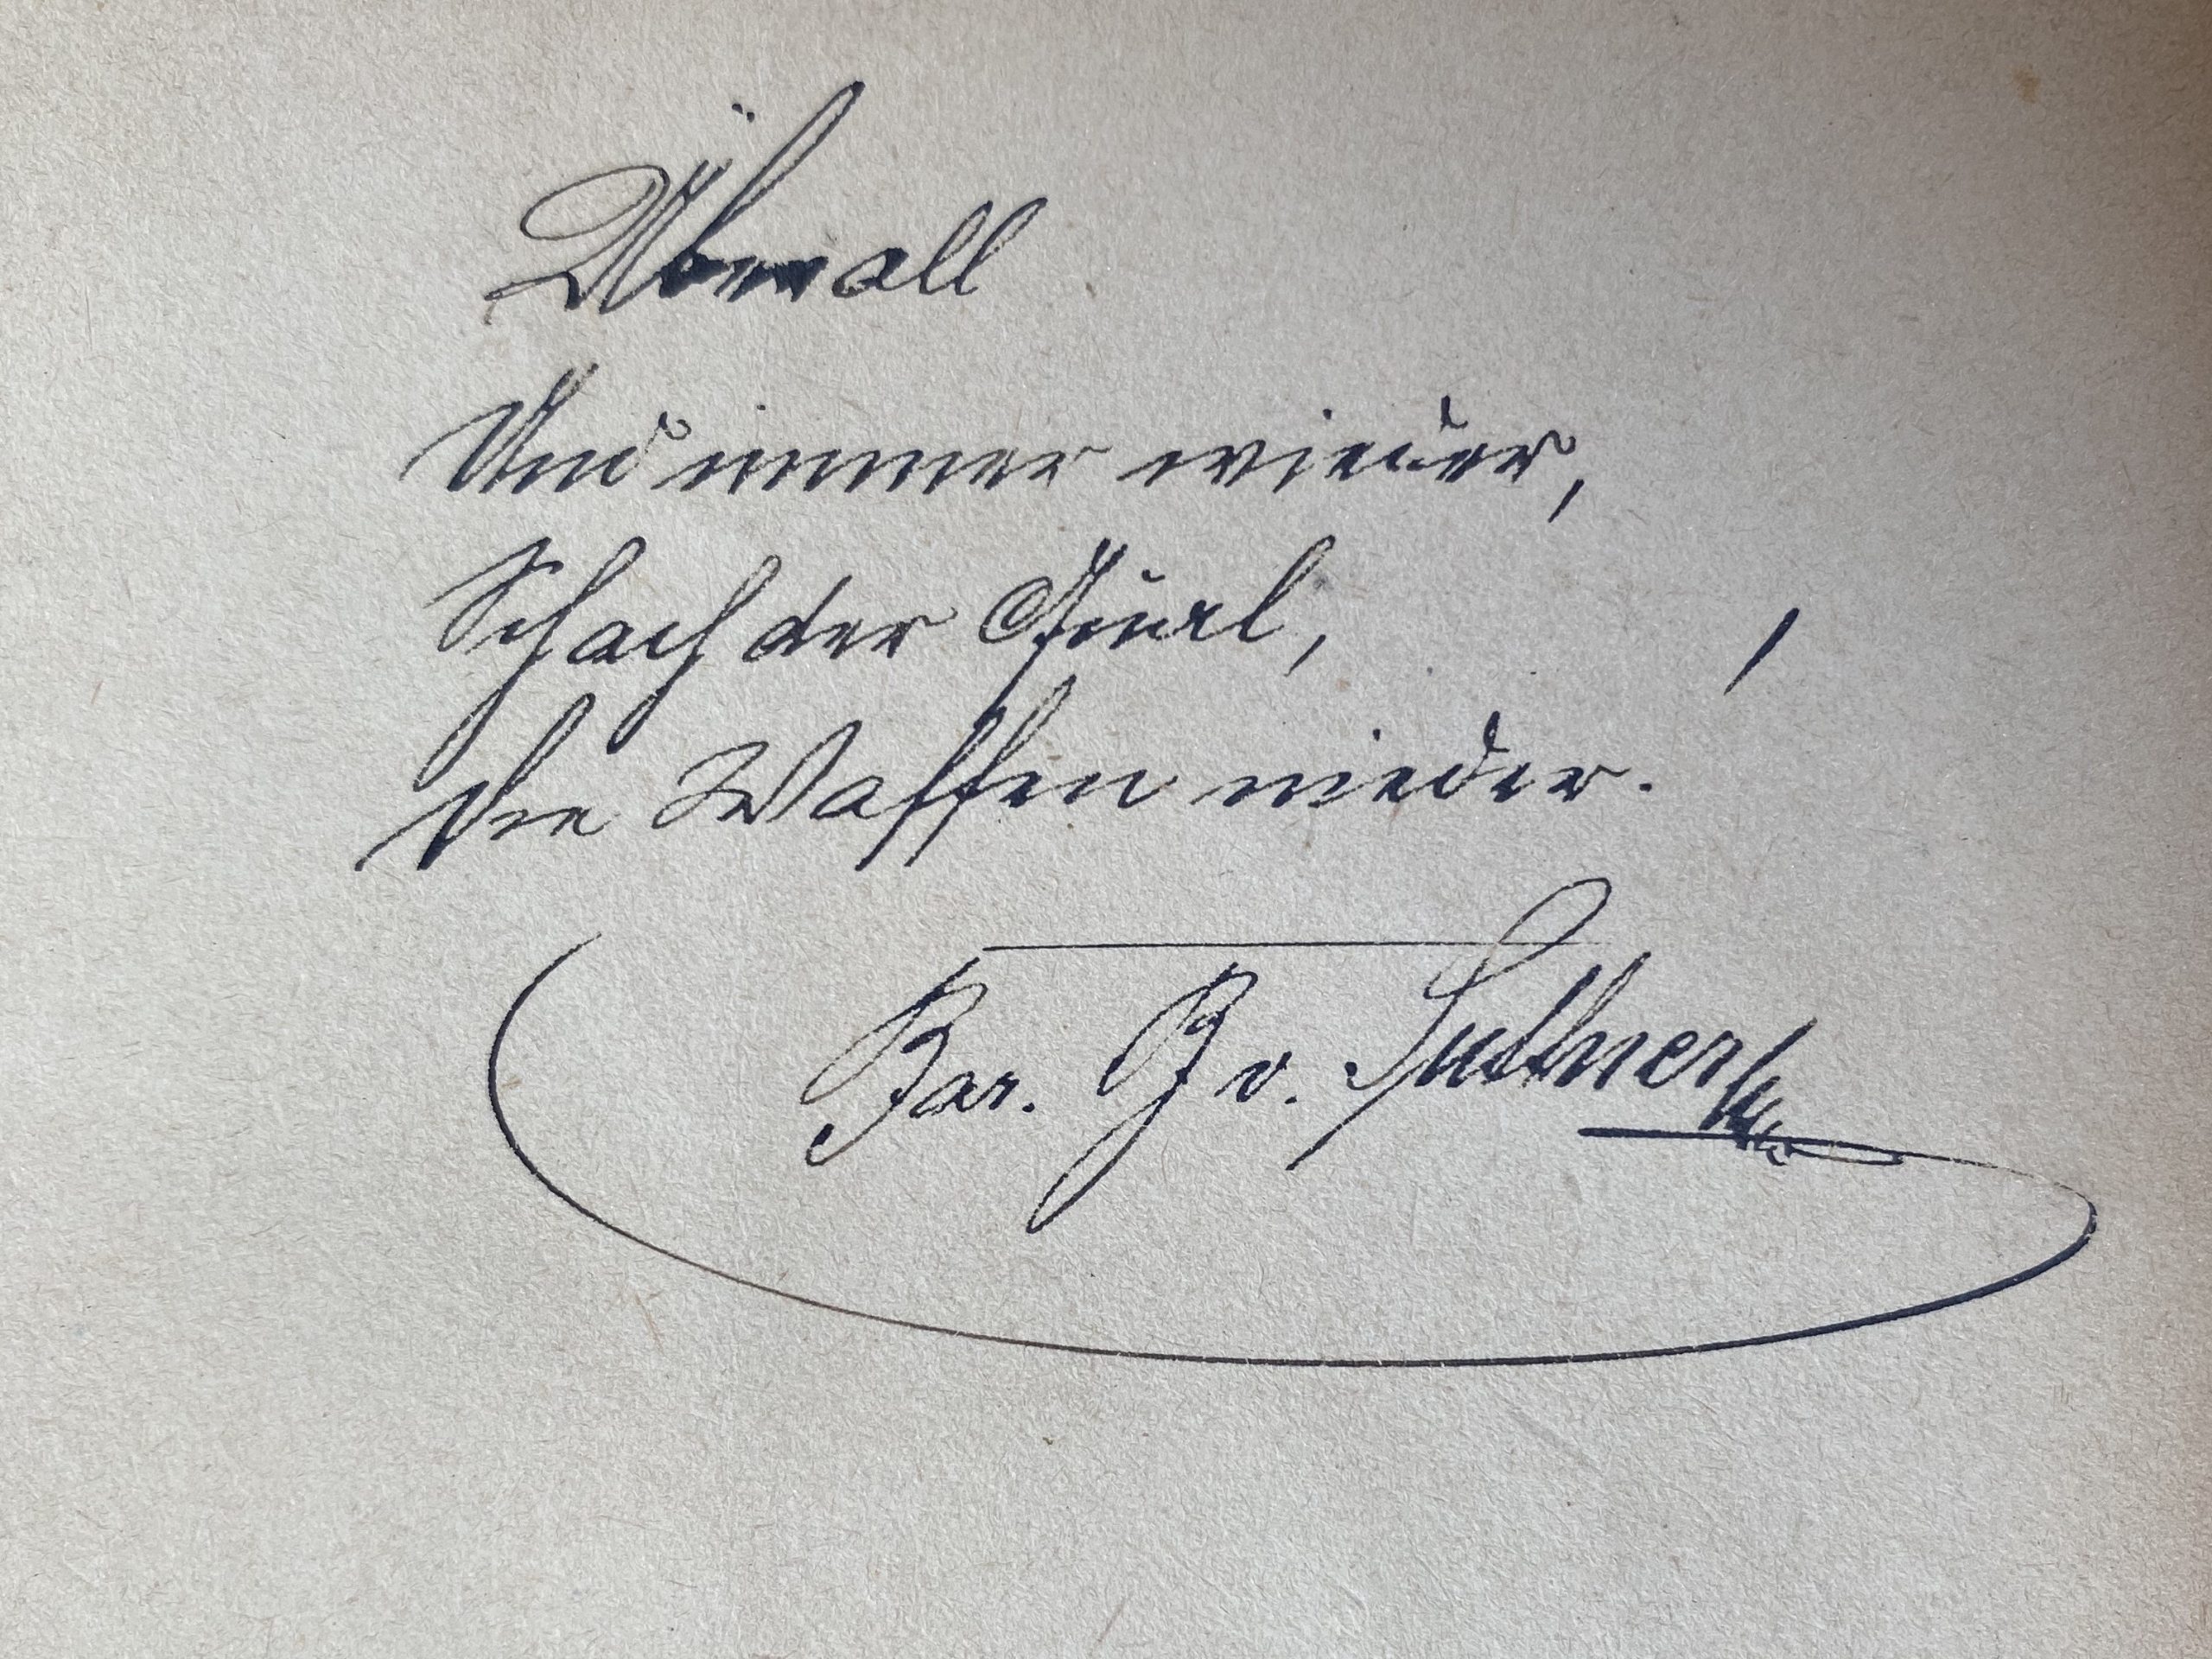 Überall
Und immer wieder,
Schach der Qual,
Die Waffen nieder.
Bar. B v. Suttner